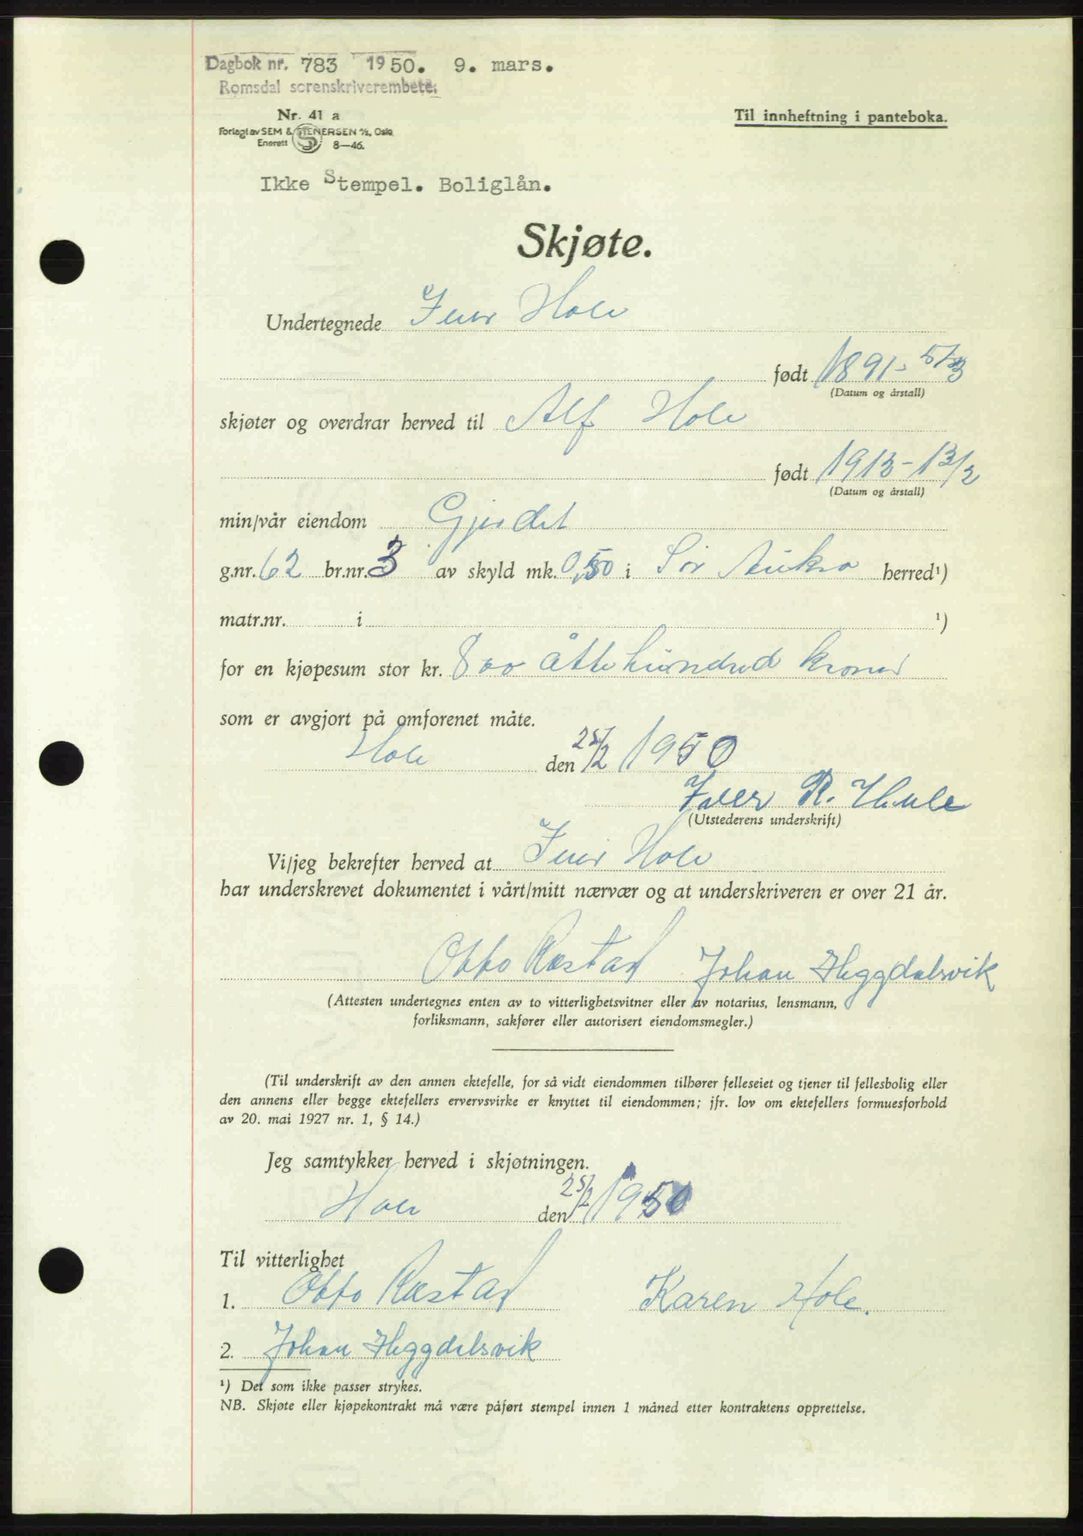 Dagbok nr. 783 1950. 9. mars.
Romsdal sorenskriverembete.
Nr. 41 a
Til innheftning i panteboka.
Forlagt av SEM & STENERSEN A/S, Oslo
Enerett 8-46.
Ikke Stempel. Boliglån.
Skjøte.
Undertegnede Iver Hole
født 1891- 5/3
(Datum og årstall)
skjøter og overdrar herved til Alf Hole
født 1913- 13/2
(Datum og årstall)
min/vår eiendom Gjerdet
g.nr. 62 br.nr. 3 av skyld mk. 0,50 i Sør Aukra herred¹)
matr.nr. i ¹)
for en kjøpesum stor kr. 800 åttehundred kroner
som er avgjort på omforenet måte.
Hole den 25/2 1950
Iver R. Hole
(Utstederens underskrift)
Vi/jeg bekrefter herved at Iver Hole
har underskrevet dokumentet i vårt/mitt nærvær og at underskriveren er over 21 år.
Otto Røstad Johan Heggdalsvik
(Attesten undertegnes enten av to vitterlighetsvitner eller av notarius, lensmann,
forliksmann, sakfører eller autorisert eiendomsmegler.)
(Til underskrift av den annen ektefelle, for så vidt eiendommen tilhører felleseiet og tjener til fellesbolig eller
den annens eller begge ektefellers ervervsvirke er knyttet til eiendommen; jfr. lov om ektefellers formuesforhold
av 20. mai 1927 nr. 1, § 14.)
Jeg samtykker herved i skjøtningen.
Hole den 25/2 1950
Til vitterlighet
1. Otto Røstad Karen Hole.
2. Johan Heggdalsvik
¹) Det som ikke passer strykes.
NB. Skjøte eller kjøpekontrakt må være påført stempel innen 1 måned etter kontraktens opprettelse.